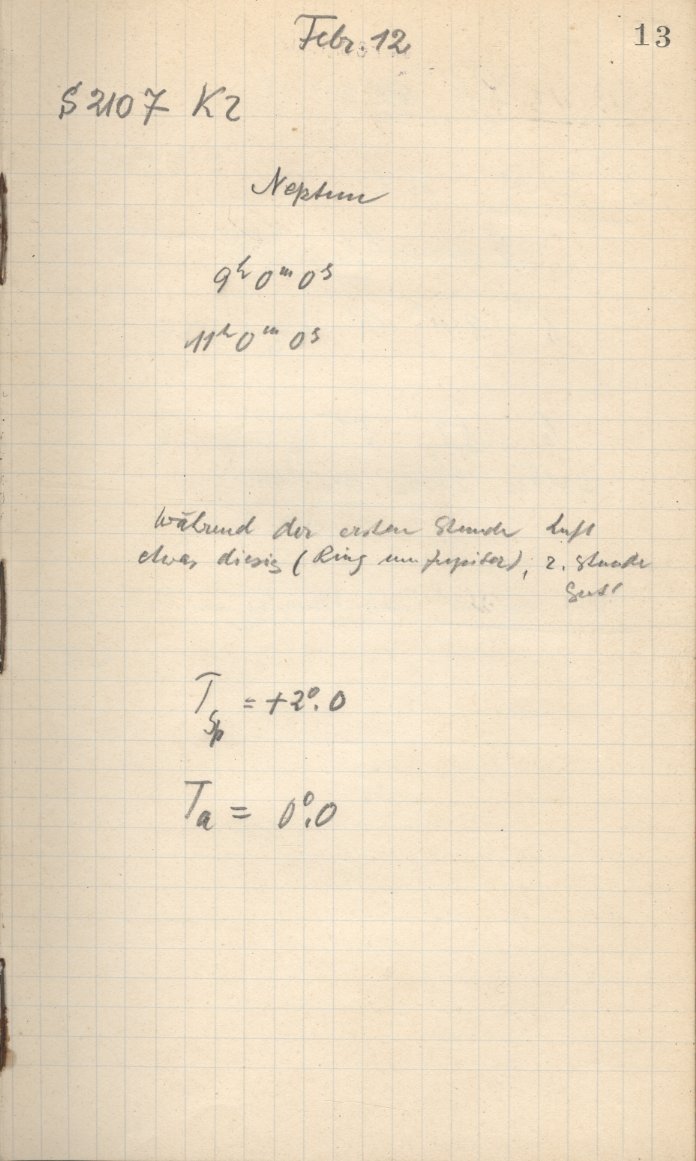 Febr. 12
13
S 2107 Kr
Neptun
9ʰ 0ᵐ 0ˢ
11ʰ 0ᵐ 0ˢ
Während der ersten Stunde Luft
etwas diesig (Ring um Jupiter), 2. Stunde
Gut!
T_Sp = +2°.0
T_a = 0°.0